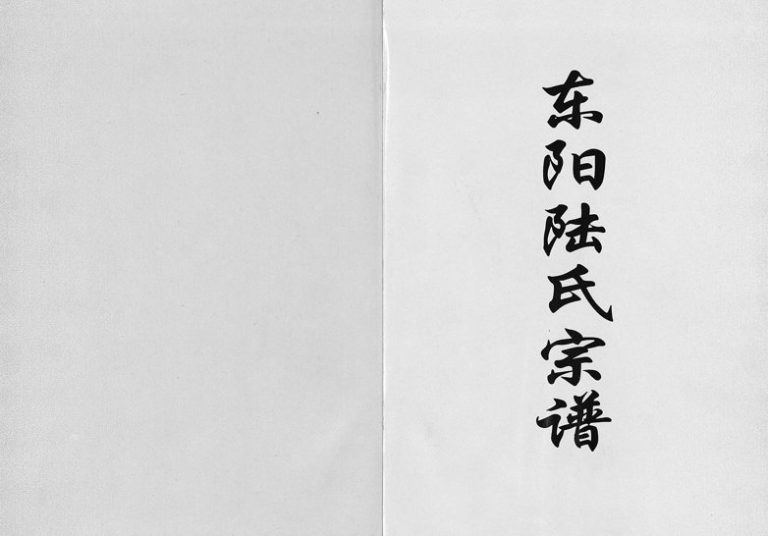 东阳陆氏宗谱